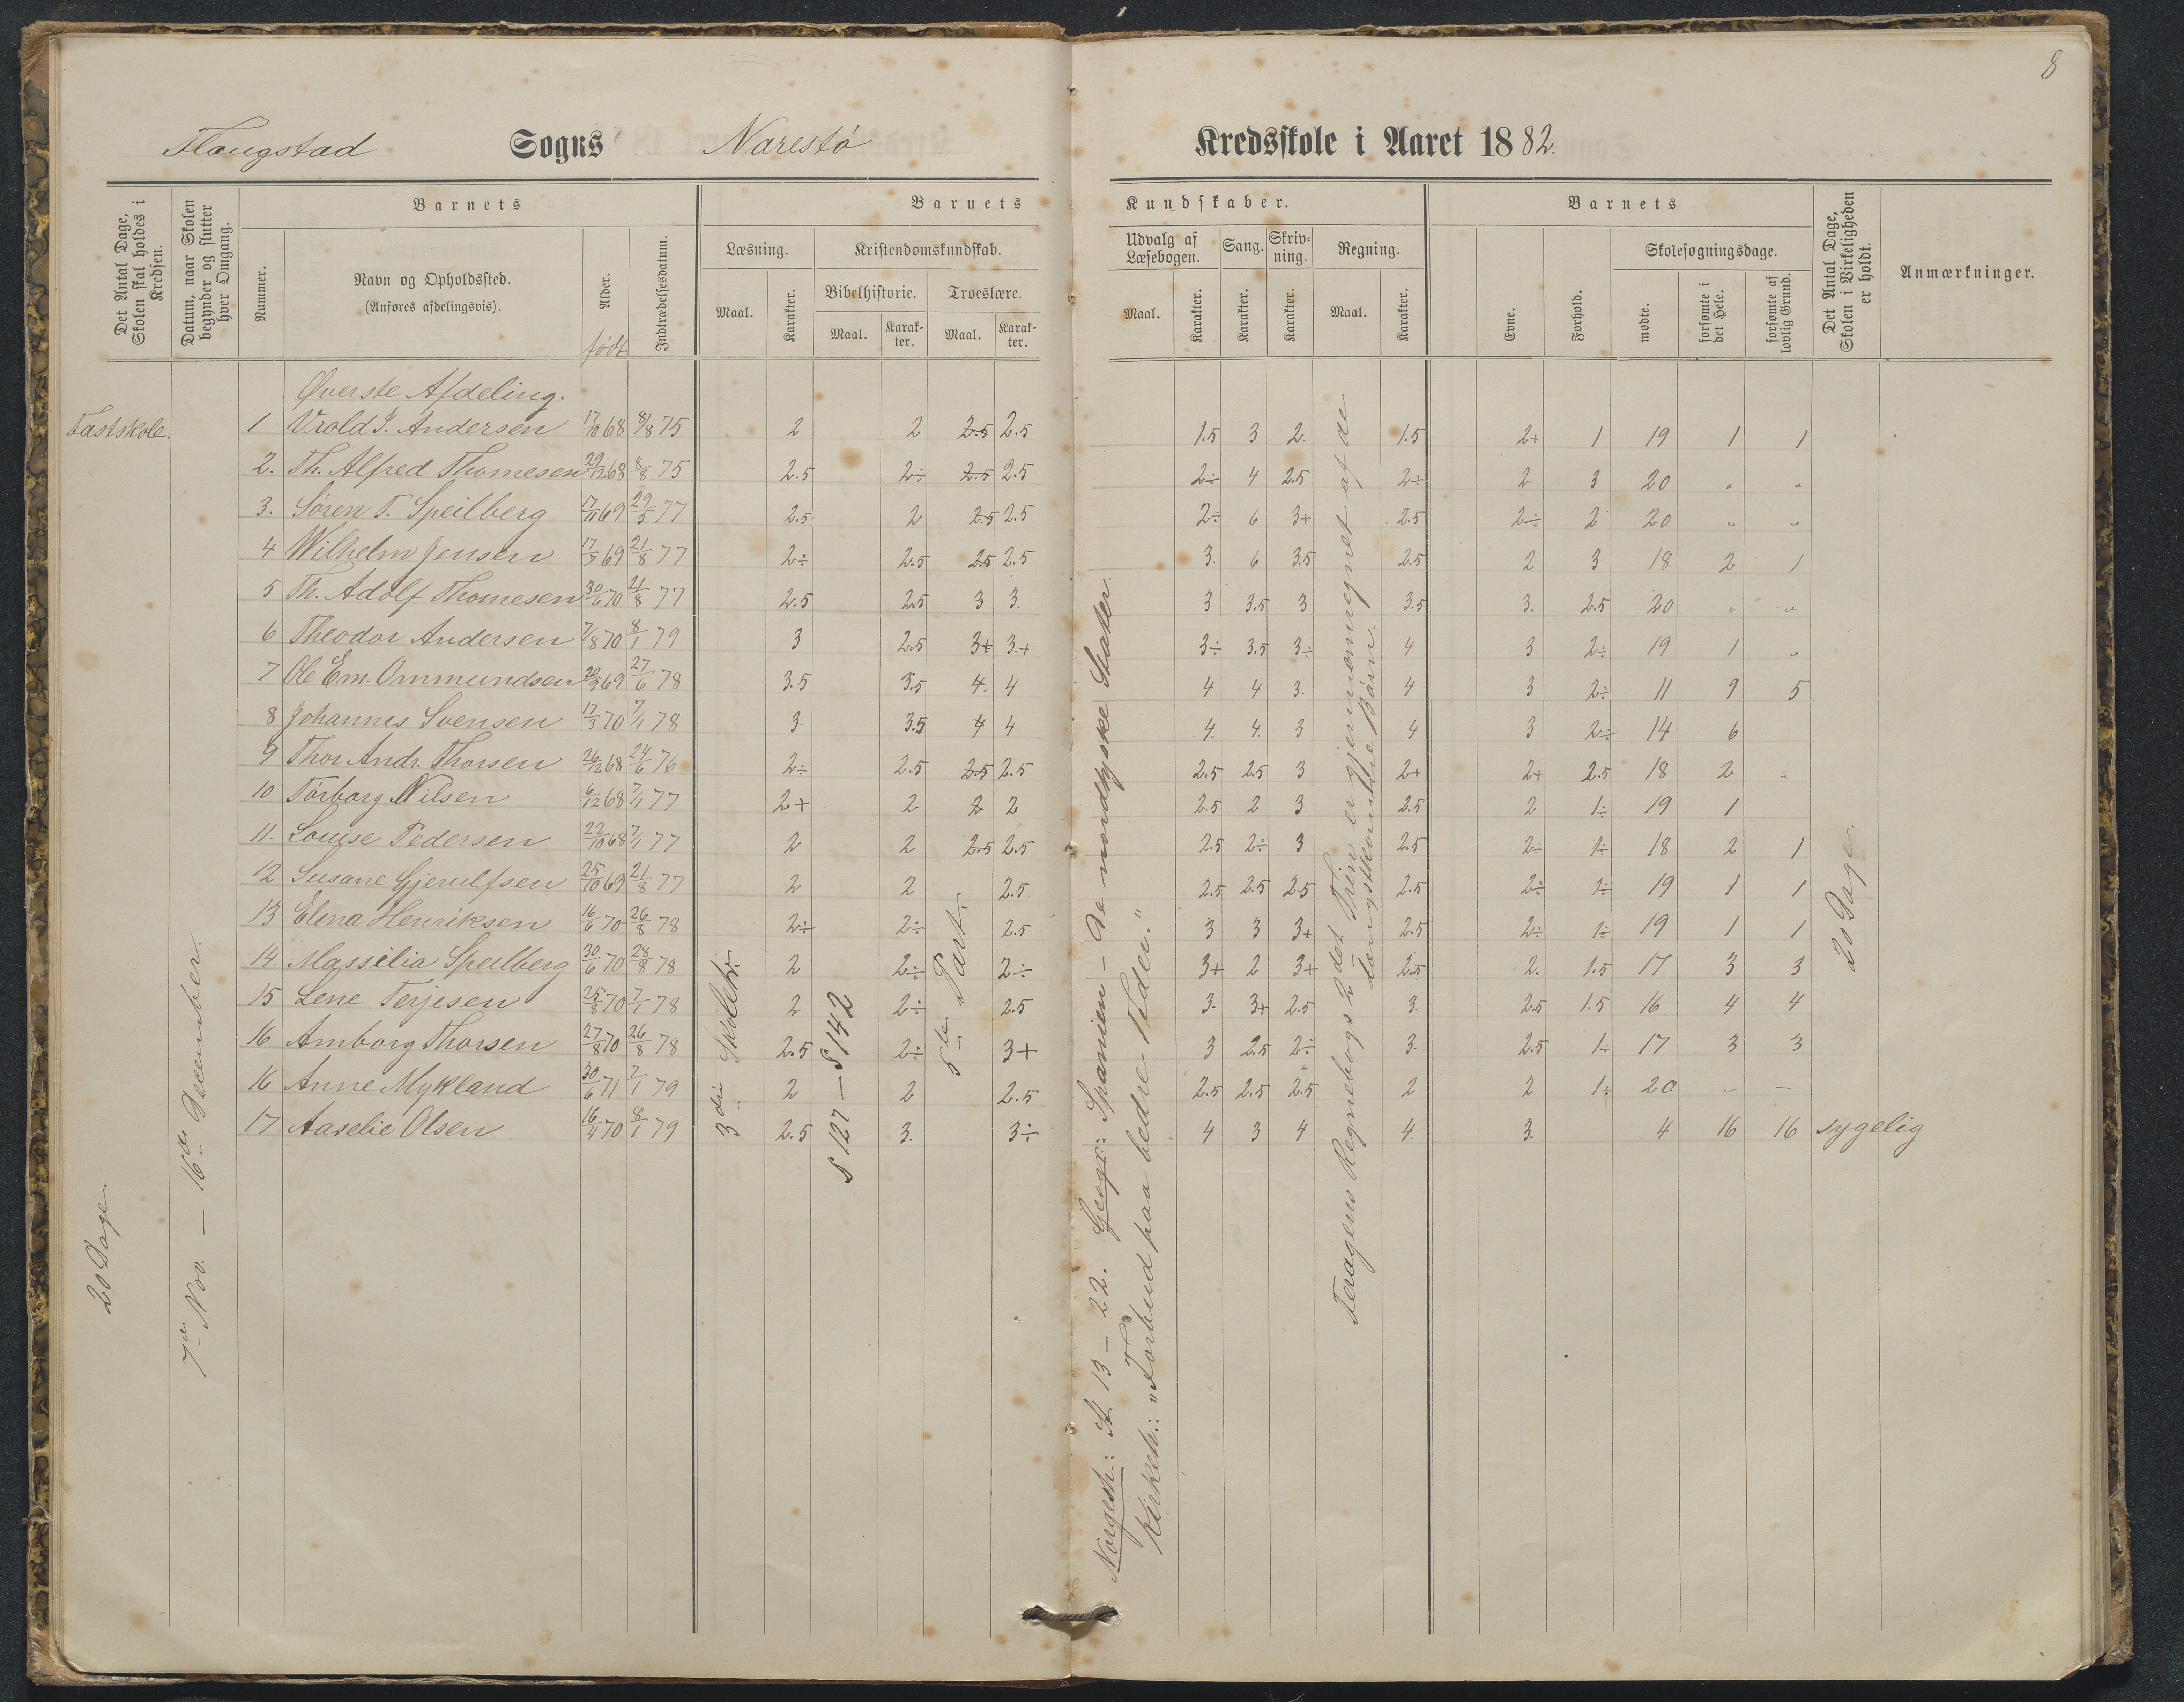 8
Flougstad Sogns Narestø Kredsskole i Aaret 1882.
Det Antal Dage, Skolen skal holdes i Kredsen.
Datum, naar Skolen begynder og slutter hver Omgang.
Barnets
Nummer.
Navn og Opholdssted.
(Anføres afdelingsvis).
Alder.
født
Indtrædelsesdatum.
Barnets Kundskaber.
Læsning.
Maal. Karakter.
Kristendomskundskab.
Bibelhistorie. Troeslære.
Maal. Karakter. Maal. Karakter.
Udvalg af Læsebogen.
Maal. Karakter.
Sang.
Karakter.
Skrivning.
Karakter.
Regning.
Maal. Karakter.
Barnets
Evne. Forhold.
Skolesøgningsdage.
mødte. forsømte i det Hele. forsømte af lovlig Grund.
Det Antal Dage, Skolen i Virkeligheden er holdt.
Anmærkninger.
Øverste Afdeling.
Fastskole. 1 Vrold J. Andersen 17/10 68 8/8 75 2 2 2.5 2.5 1.5 3 2. 1.5 2+ 1 19 1 1
2. Th. Alfred Thomesen 29/12 68 8/8 75 2.5 2÷ 2.5 2.5 2÷ 4 2.5 2÷ 2 3 20 " "
3. Søren T. Speilberg 17/11 69 29/5 77 2.5 2 2.5 2.5 2÷ 6 3+ 2.5 2÷ 2 20 " "
4 Wilhelm Jensen 17/9 69 21/8 77 2÷ 2.5 2.5 2.5 3. 6 3.5 2.5 2 3 18 2 1
5 Th. Adolf Thomesen 30/6 70 21/8 77 2.5 2.5 3 3. 3 3.5 3 3.5 3. 2.5 20 " "
6 Theodor Andersen 7/8 70 8/1 79 3 2.5 3+ 3.+ 3÷ 3.5 3÷ 4 3 2÷ 19 1 "
7 Ole Em. Ommundsen 20/9 69 27/6 78 3.5 3.5 4. 4 4 4 3. 4 3 2÷ 11 9 5
8 Johannes Svensen 17/3 70 7/1 78 3 3.5 4 4 4. 4. 3 4 3 2÷ 14 6
9 Thor Andr. Thorsen 26/12 68 24/6 76 2÷ 2.5 2.5 2.5 2.5 2.5 3 2+ 2+ 2.5 18 2 "
10 Torborg Nilsen 6/12 68 7/1 77 2+ 2 2 2 2.5 2 3 2.5 2 1÷ 19 1
11. Louise Pedersen 22/10 68 7/1 77 2 2 2.5 2.5 2.5 2÷ 3 2.5 2÷ 1÷ 18 2 1
12 Susane Gjerulfsen 25/10 69 21/8 77 2 2 2.5. 2.5 2.5 2.5 2.5 2÷ 1÷ 19 1 1
13 Elena Henriksen 16/6 70 26/8 78 2÷ 2÷ 2.5 3 3 3+ 2.5 2÷ 1÷ 19 1 1
14. Massilia Speilberg 30/6 70 28/8 78 2 2÷ 2÷ 3+ 2 3+ 2.5 2. 1.5 17 3 3
15 Lene Terjesen 25/8 70 7/1 78 2 2÷ 2.5 3. 3+ 2.5 3. 2.5 1.5 16 4 4
16 Amborg Thorsen 27/8 70 26/8 78 2.5 2÷ 3+ 3 2.5 2÷ 3. 2.5 1÷ 17 3 3
16 Anne Mykland 30/6 71 7/1 79 2 2 2.5 2.5 2.5 2.5 2 2 1÷ 20 " —
17 Aaselie Olsen 16/4 70 8/1 79 2.5 3. 3÷ 4 3 4 4. 3. 4 16 16 sygelig
20 Dage.
7de Nov. — 16de December.
3die Skoletr.
S 127 — S 142
5te Part.
Norgesh.: St. 13 – 22. Geogr.: Spanien – De nordtyske Stater.
Kirkeh.: "Forbud paa bedre Tider."
Feragens Regnebogs 2det Trin er gjennemregnet af de
længstkomne Børn.
20 Dage.